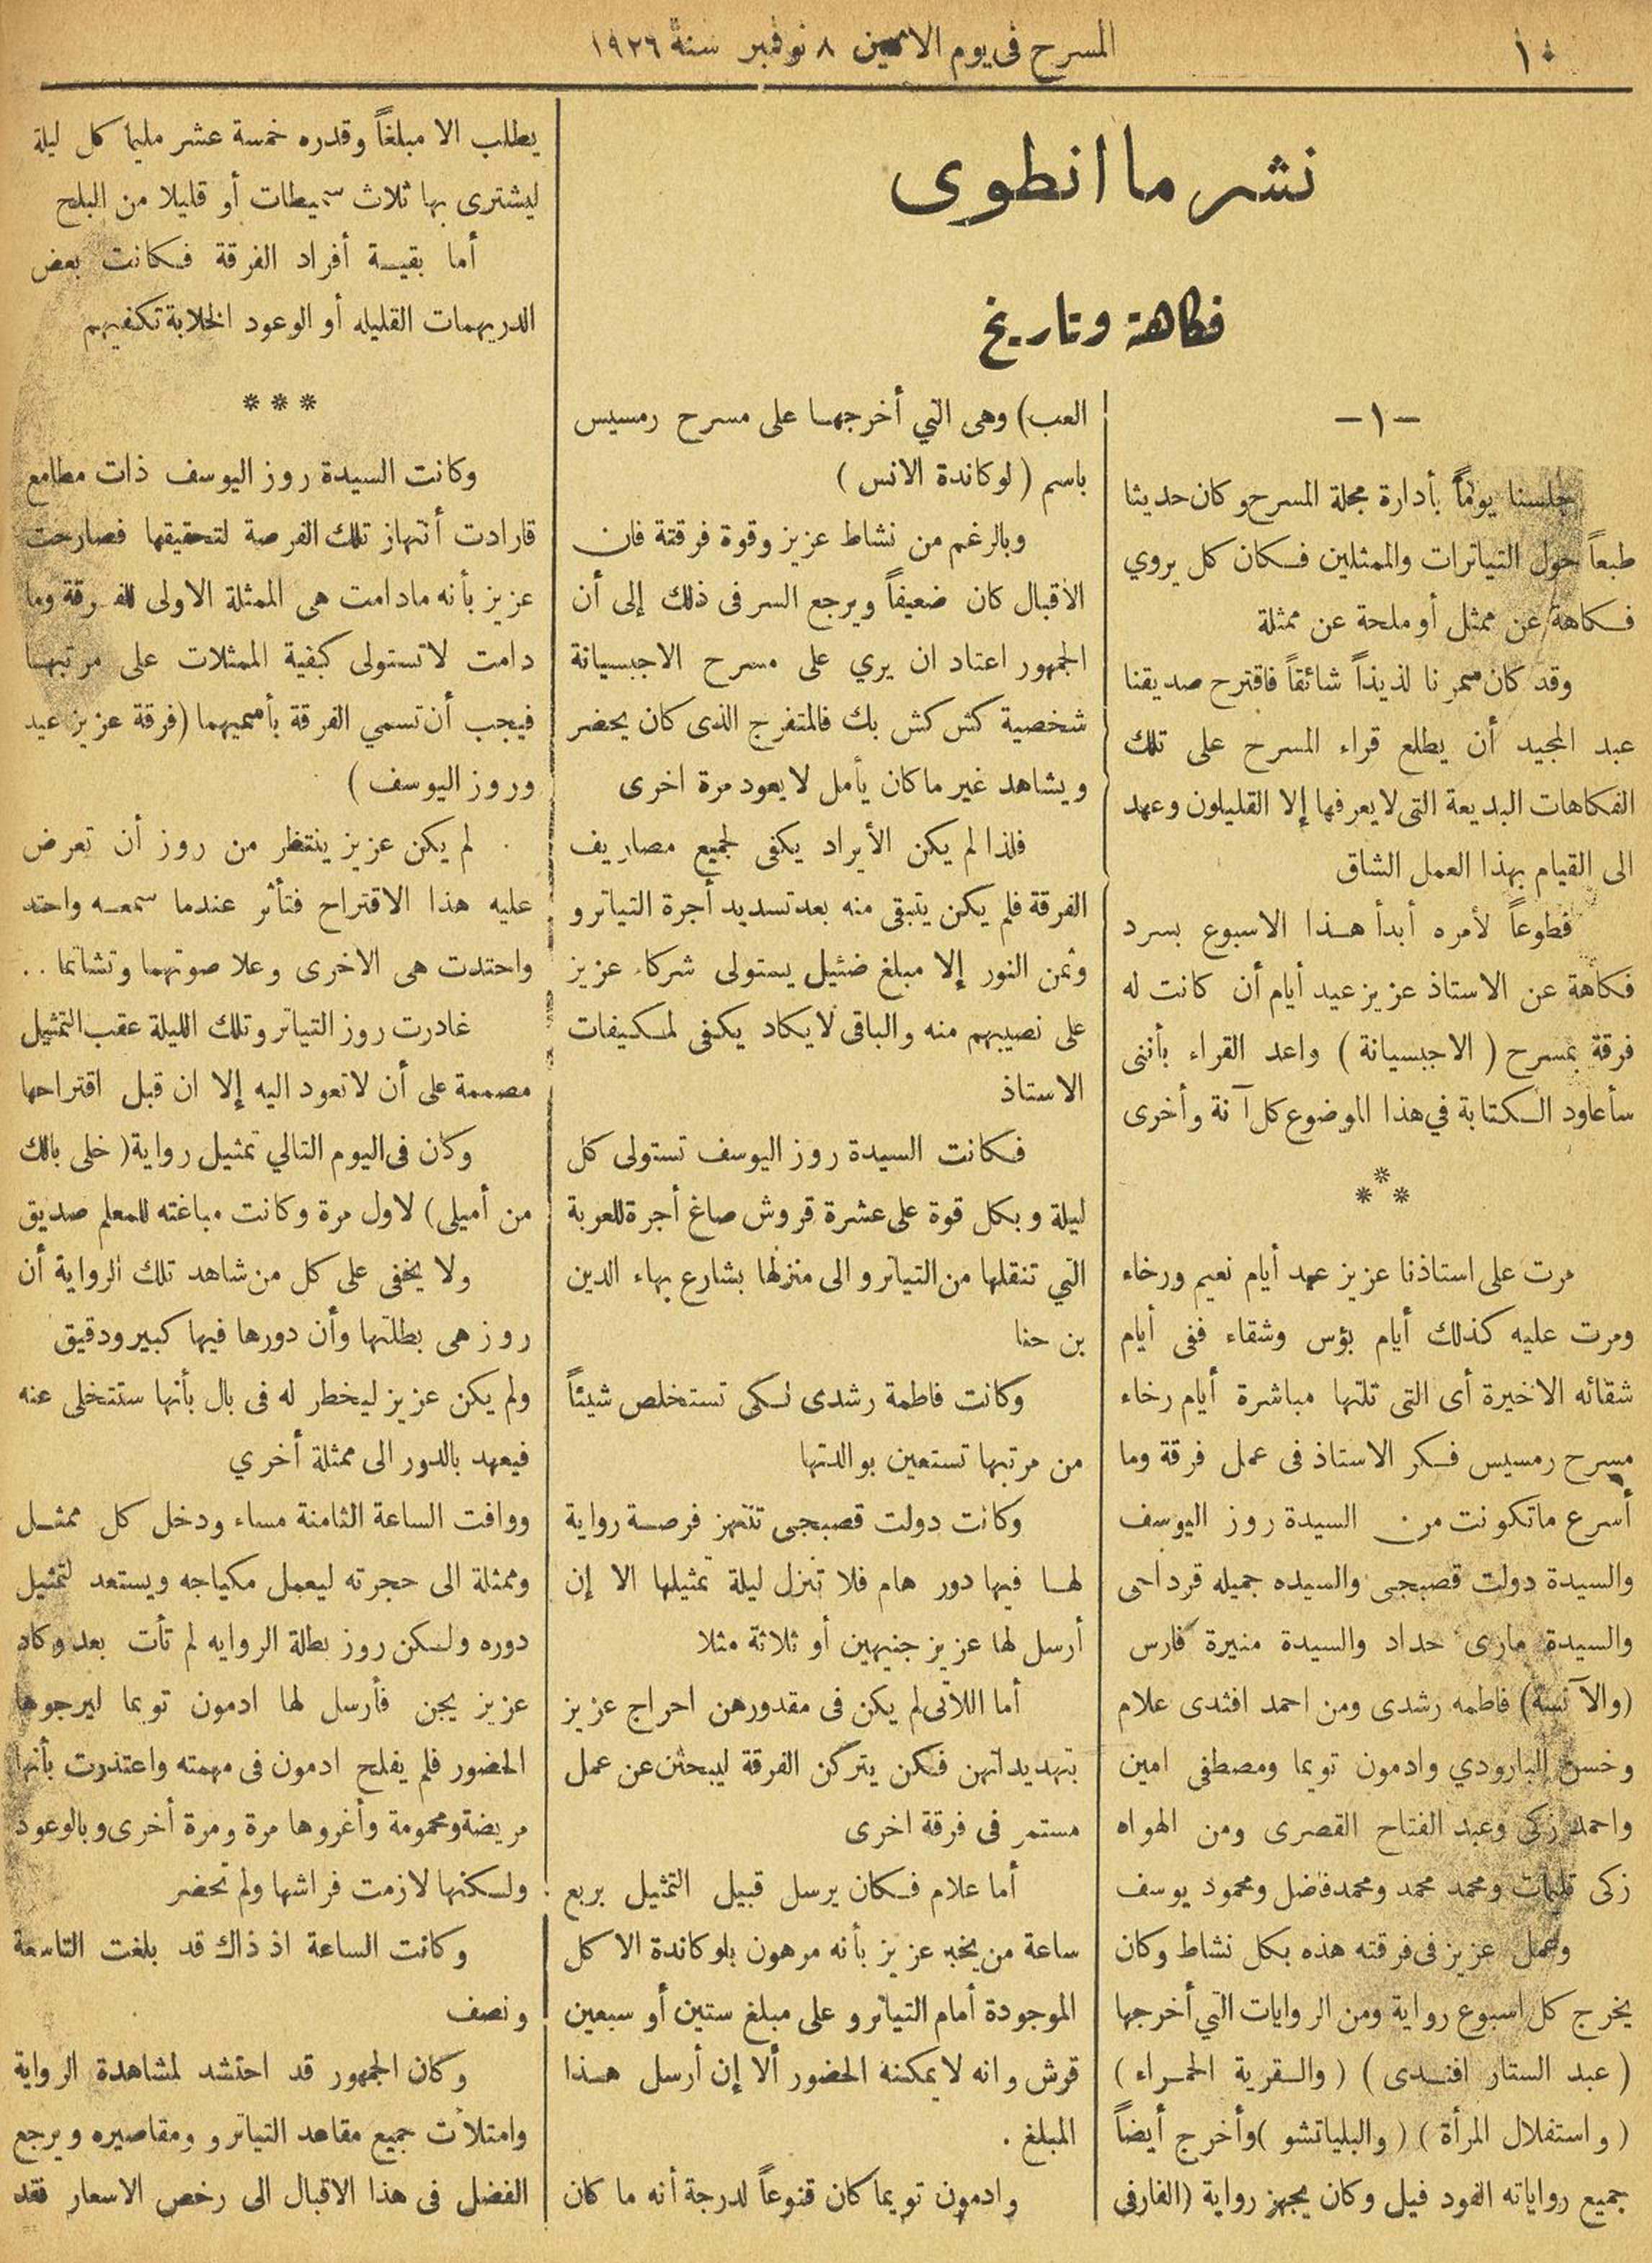 ١٠
المسرح فى يوم الاثنين ٨ نوفمبر سنة ١٩٢٦
نشر ما انطوى
فكاهة وتاريخ
-١-
جلسنا يوماً بأدارة مجلة المسرح وكان حديثا
طبعاً حول التياترات والممثلين فكان كل يروي
فكاهة عن ممثل أو ملحة عن ممثلة
وقد كان سمرنا لذيذاً شائقاً فاقترح صديقنا
عبد المجيد أن يطلع قراء المسرح على تلك
الفكاهات البديعة التى لا يعرفها إلا القليلون وعهد
الى القيام بهذا العمل الشاق
فطوعاً لأمره أبدأ هذا الاسبوع بسرد
فكاهة عن الاستاذ عزيز عيد أيام أن كانت له
فرقة بمسرح ( الاجبسيانة ) واعد القراء بأننى
سأعاود الكتابة في هذا الموضوع كل آنة وأخرى
***
مرت على استاذنا عزيز عهد أيام نعيم ورخاء
ومرت عليه كذلك أيام بؤس وشقاء ففى أيام
شقائه الاخيرة أى التى تلتها مباشرة أيام رخاء
مسرح رمسيس فكر الاستاذ فى عمل فرقة وما
أسرع ماتكونت من السيدة روز اليوسف
والسيدة دولت قصبجى والسيده جميله قرداحى
والسيدة مارى حداد والسيدة منيرة فارس
(والآنسة) فاطمه رشدى ومن احمد افندى علام
وحسن البارودي وادمون تويما ومصطفى امين
واحمد زكى وعبد الفتاح القصرى ومن الهواه
زكى قليمات ومحمد محمد ومحمد فاضل ومحمود يوسف
وعمل عزيز فى فرقته هذه بكل نشاط وكان
يخرج كل اسبوع رواية ومن الروايات التي أخرجها
( عبد الستار افندى ) ( والقرية الحمراء )
( واستفلال المرأة ) ( والبلياتشو ) وأخرج أيضاً
جميع رواياته الفود فيل وكان يجهز رواية (الفارفى
العب) وهى التي أخرجها على مسرح رمسيس
باسم ( لوكاندة الانس )
وبالرغم من نشاط عزيز وقوة فرقتة فان
الاقبال كان ضعيفاً ويرجع السر فى ذلك إلى أن
الجمهور اعتاد ان يري على مسرح الاجبسيانة
شخصية كش كش بك فالمتفرج الذى كان يحضر
ويشاهد غير ما كان يأمل لا يعود مرة اخرى
فلذا لم يكن الأيراد يكفى لجميع مصاريف
الفرقة فلم يكن يتبقى منه بعد تسديد أجرة التياترو
وثمن النور إلا مبلغ ضئيل يستولى شركاء عزيز
على نصيبهم منه والباقى لا يكاد يكفى لمكيفات
الاستاذ
فكانت السيدة روز اليوسف تستولى كل
ليلة وبكل قوة على عشرة قروش صاغ أجرة للعربة
التي تنقلها من التياترو الى منزلها بشارع بهاء الدين
بن حنا
وكانت فاطمة رشدى لكى تستخلص شيئاً
من مرتبها تستعين بوالدتها
وكانت دولت قصبجى تنتهز فرصة رواية
لها فيها دور هام فلا تنزل ليلة تمثيلها الا إن
أرسل لها عزيز جنيهين أو ثلاثة مثلا
أما اللاتى لم يكن فى مقدورهن احراج عزيز
بتهديداتهن فكن يتركن الفرقة ليبحثن عن عمل
مستمر فى فرقة اخرى
أما علام فكان يرسل قبيل التمثيل بربع
ساعة من يخبر عزيز بأنه مرهون بلوكاندة الا كل
الموجودة أمام التياترو على مبلغ ستين أو سبعين
قرش وانه لا يمكنه الحضور ألا إن أرسل هذا
المبلغ .
وادمون تويما كان قنوعاً لدرجة أنه ما كان
يطلب الا مبلغاً وقدره خمسة عشر مليما كل ليلة
ليشترى بها ثلاث سميطات أو قليلا من البلح
أما بقية أفراد الفرقة فكانت بعض
الدريهمات القليله أو الوعود الخلابة تكفيهم
***
وكانت السيدة روز اليوسف ذات مطامع
قارادت أنتهاز تلك الفرصة لتحقيقها فصارحت
عزيز بأنه مادامت هى الممثلة الاولى للفرقة وما
دامت لا تستولى كبقية الممثلات على مرتبها
فيجب أن تسمي الفرقة بأسميهما (فرقة عزيز عيد
وروز اليوسف )
لم يكن عزيز ينتظر من روز أن تعرض
عليه هذا الاقتراح فتأثر عندما سمعه واحتد
واحتدت هى الاخرى وعلا صوتهما وتشاتما ..
غادرت روز التياتر وتلك الليلة عقب التمثيل
مصممة على أن لا تعود اليه إلا ان قبل اقتراحها
وكان فى اليوم التالي تمثيل رواية ( خلى بالك
من أميلى) لاول مرة وكانت مباغته للمعلم صديق
ولا يخفى على كل من شاهد تلك الرواية أن
روز هى بطلتها وأن دورها فيها كبير ودقيق
ولم يكن عزيز ليخطر له فى بال بأنها ستتخلى عنه
فيعهد بالدور الى ممثلة أخري
ووافت الساعة الثامنة مساء ودخل كل ممثل
وممثلة الى حجرته ليعمل مكياجه ويستعد لتمثيل
دوره ولكن روز بطلة الروايه لم تأت بعد وكاد
عزيز يجن فأرسل لها ادمون تويما ليرجوها
الحضور فلم يفلح ادمون فى مهمته واعتذرت بأنها
مريضة ومحمومة وأغروها مرة ومرة أخرى وبالوعود
ولكنها لازمت فراشها ولم تحضر
وكانت الساعة اذ ذاك قد بلغت التاسعة
ونصف
وكان الجمهور قد احتشد لمشاهدة الرواية
وامتلأت جميع مقاعد التياترو ومقاصيره ويرجع
الفضل فى هذا الاقبال الى رخص الاسعار فقد